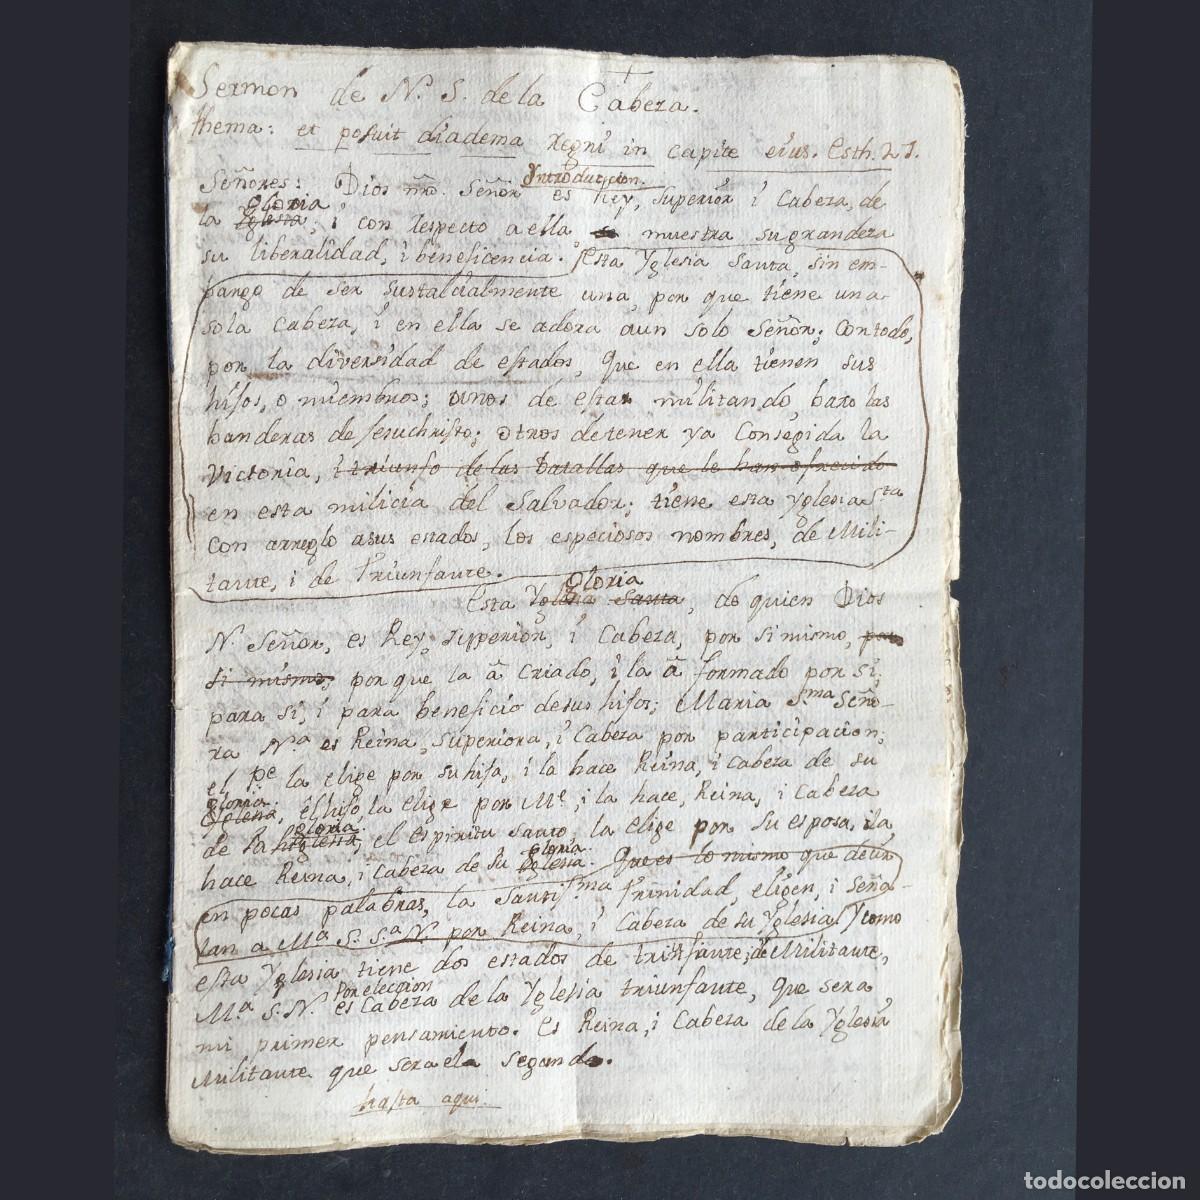 +
Sermon de N. S. de la Cabeza.
thema: et posuit diadema regni in capite eius. Esth. 2 J.
Introduccion.
Señores: Dios nrõ. Señor es Rey, Superior i Cabeza, de
Gloria
la Yglesia; i con respecto a ella, muestra su grandeza
su liberalidad, i beneficencia. Esta Yglesia Santa, sin em-
bargo de ser sustalcialmente una, por que tiene una
sola Cabeza, i en ella se adora aun solo Señor; con todo,
por la diversidad de estados, que en ella tienen sus
hijos, o miembros; unos de estar militando baxo las
banderas de Jesuchristo; otros de tener ya Consegida la
Victoria, i triunfo de las batallas que le han ofrecido
en esta milicia del Salvador; tiene esta Yglesia Sta
con arreglo asus estados, los especiosos nombres, de Mili-
tante, i de Triunfante.
Gloria
Esta Yglesia Santa, de quien Dios
N. Señor, es Rey, superior, i Cabeza, por si mismo, por
si mismo, por que la â criado, i la â formado por si;
para si, i para beneficio desus hijos; Maria S.ma Seño-
ra Na es Reina, Superiora, i Cabeza por participacion;
el Pe la elige por su hija, i la hace Reina, i Cabeza de su
Gloria
Yglesia, el hijo, la elige por Me, i la hace, Reina, i Cabeza
gloria
de la Yglesia, el espiritu Santo, la elige por su esposa, ila
gloria
hace Reina, i Cabeza de su Yglesia. Que es lo mismo que decir
en pocas palabras, la Santisma trinidad, eligen, i Seña-
lan a Ma S. Sa N. por Reina, i Cabeza de su Yglesia Y como
esta Yglesia tiene dos estados de triunfante, de Militante,
Por eleccion
Ma S. N. es Cabeza de la Yglesia triunfante, que sera
mi primer pensamiento. es Reina, i Cabeza de la Yglesia
Militante que sera el segundo.
hasta aqui
todocoleccion